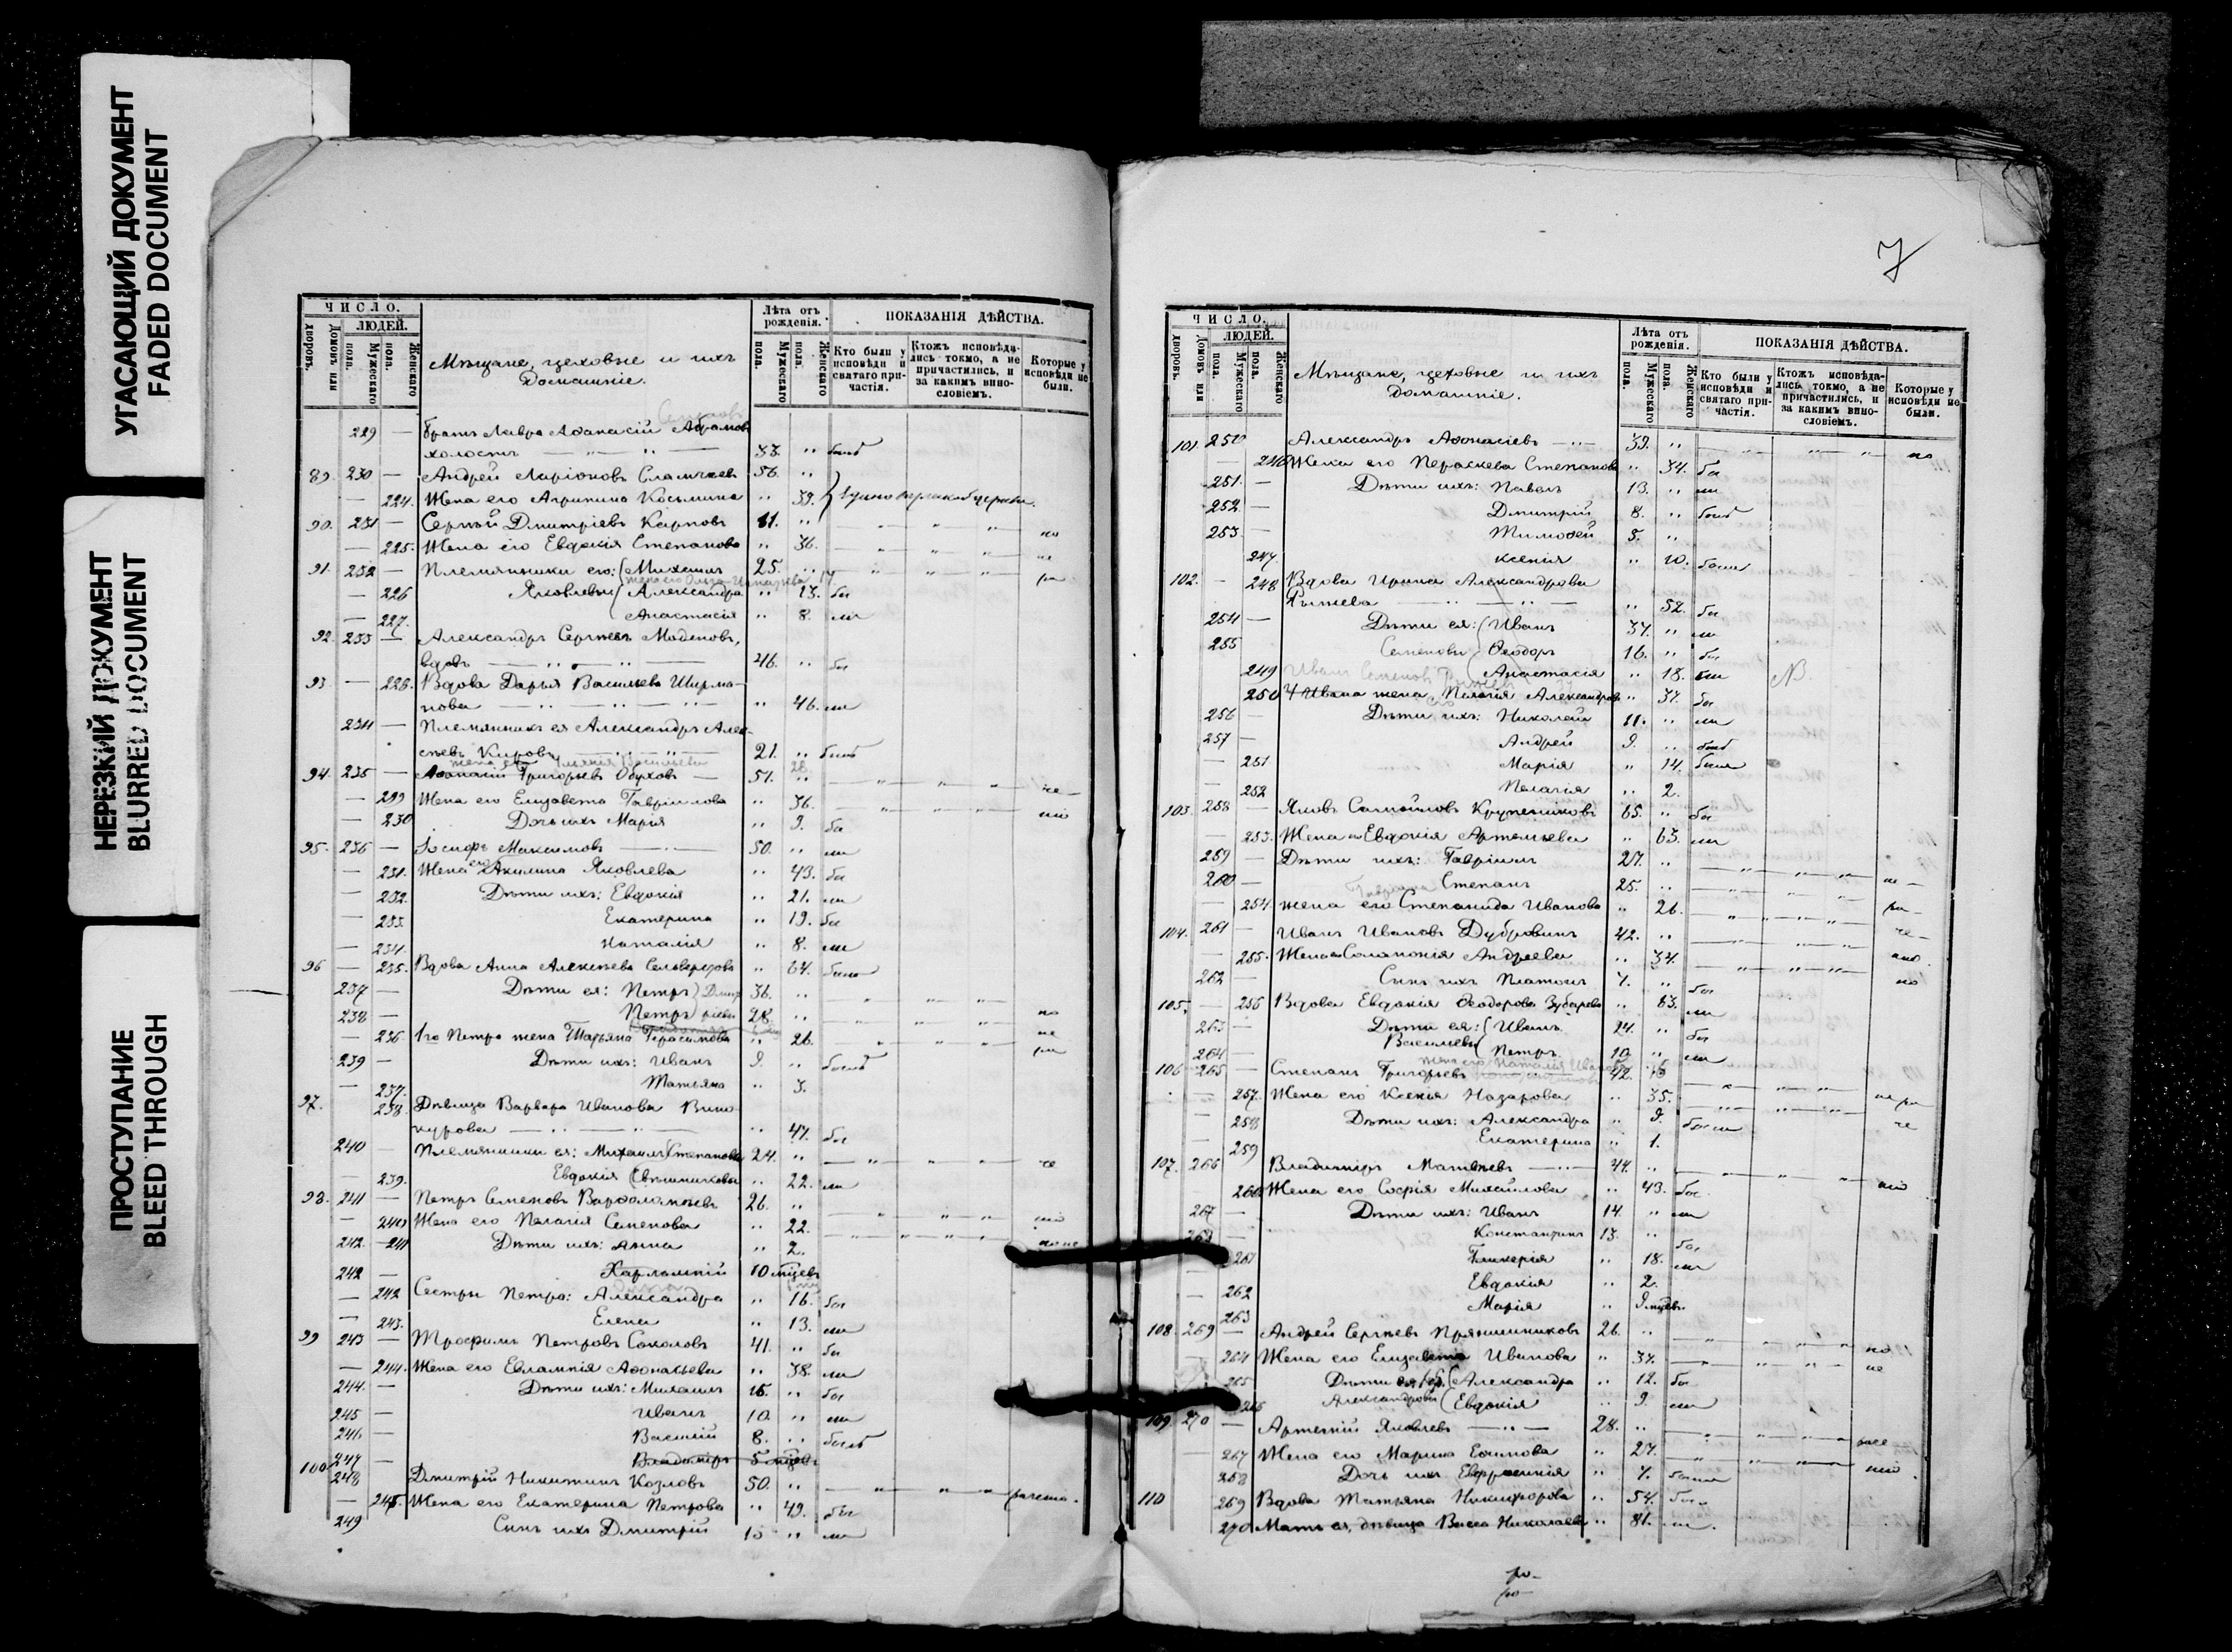 УГАСАЮЩИЙ ДОКУМЕНТ
FADED DOCUMENT
НЕРЕЗКИЙ ДОКУМЕНТ
BLURRED DOCUMENT
ПРОСТУПАНИЕ
BLEED THROUGH
ЧИСЛО.
ЛЮДЕЙ.
Домовъ или дворовъ.
Мужескаго пола.
Женскаго пола.
Мѣщане, цеховые и ихъ
домашніе.
Лѣта отъ рожденія.
Мужескаго пола.
Женскаго пола.
ПОКАЗАНІЯ ДѢЙСТВА.
Кто были у исповѣди и святаго причастія.
Ктожъ исповѣдались токмо, а не причастились, и за какимъ винословіемъ.
Которые у исповѣди не были.
229 — братъ Лавра Аѳанасій Абрамовъ
холостъ — 33. " бывъ
89. 230 — Андрей Ларіоновъ 56. "
— 224. Жена его Агрипина Косьмина " 39.
90. 231 — Сергѣй Дмитріевъ Карповъ 41. "
— 225. Жена его Евдокія Степанова " 36.
91. 232 — Племянники его: Михаилъ 25. "
— 226 Яковлевы Александра " 13. бы
— 227. Анастасія " 8. ли
92. 233 — Александръ Сергѣевъ
вдовъ — 46. " бы
93 — 228. Вдова Дарья Васильева Ширма-
нова — " 46. ли
234 — Племянникъ ея Александръ Алек-
сѣевъ Кировъ 21. " бывъ
94. 235 — Аѳанасій Григорьевъ Обуховъ — 51. "
— 299 Жена его Елизавета Гавріилова " 36.
— 230 Дочь ихъ Марія " 9. бы
95. 236 — Максимовъ — 50. " ли
— 231. Жена его Акилина Яковлева " 43. бы
— 232. Дѣти ихъ: Евдокія " 21. ли
— 233. Екатерина " 19. бы
— 234. Наталія " 8. ли
96 — 235. Вдова Анна Алексѣева " 64. была
237 — Дѣти ея: Петръ 36. "
238 — Петръ 28. "
— 236 1го Петра жена Татьяна Герасимова " 26.
239 — Дѣти ихъ: Иванъ 9. " бывъ
— 237. Татьяна " 3.
97. 238. Дѣвица Варвара Иванова Вино-
курова — " 47. бы
240 — Племянники ея: Михаилъ Степановы 24. "
— 239. Евдокія " 22. ли
98. 241 — Петръ Семеновъ Варѳоломѣевъ 26. "
— 240 Жена его Пелагія Семенова " 22.
242. — 241 Дѣти ихъ: Анна " 2.
242 — Харлампій 10 мѣсяцевъ
— 242 Сестры Петра: Александра " 16. бы
— 243. Елена " 13. ли
99 243 — Трофимъ Петровъ Соколовъ 41. " бы
— 244. Жена его Евлампія Аѳонасьева " 38. ли
244. — Дѣти ихъ: Михаилъ 15. " бы
245 — Иванъ 10. " ли
246 — Василій 8. " бывъ
247 — Владиміръ
100 248 Дмитрій Никитинъ Козловъ 50. "
— 245. Жена его Екатерина Петрова " 49. бы
249 Сынъ ихъ Дмитрій 15 " ли
7
ЧИСЛО.
ЛЮДЕЙ.
Домовъ или дворовъ.
Мужескаго пола.
Женскаго пола.
Мѣщане, цеховые и ихъ
домашніе.
Лѣта отъ рожденія.
Мужескаго пола.
Женскаго пола.
ПОКАЗАНІЯ ДѢЙСТВА.
Кто были у исповѣди и святаго причастія.
Ктожъ исповѣдались токмо, а не причастились, и за какимъ винословіемъ.
Которые у исповѣди не были.
101. 250 Александръ Аѳонасіевъ — 39. "
— 246 Жена его Параскева Степанова " 34. бы
251. — Дѣти ихъ: Павелъ 13. " ли
252 — Дмитрій 8. " бывъ
253 — Тимоѳей 5. "
247. Ксенія " 10. была
102. — 248 Вдова Ирина Александрова
Рыжева — " 52. бы
254 — Дѣти ея: Иванъ 37. " ли
255 Семеновы Ѳеодоръ 16. " бы
249 Анастасія " 18. ли
250 Ивана жена Пелагія Александрова " 37. бы
256 — Дѣти ихъ: Николай 11. " ли
257 — Андрей 9. " бывъ
— 251 Марія " 14. была
— 252 Пелагія " 2.
103. 258 — Яковъ Самойловъ Крупенниковъ 65. " бы
— 253. Жена его Евдокія Артемьева " 63. ли
259 — Дѣти ихъ: Гавріилъ 27. "
260 — Степанъ 25. "
— 254. жена его Степанида Иванова " 26.
104. 261 — Иванъ Ивановъ Дубровинъ 42. "
— 255. Жена его Соломонія Андреева " 34.
262 — Сынъ ихъ Платонъ 7. " бы
105. — 256 Вдова Евдокія Ѳеодорова " 63. ли
263 — Дѣти ея: Иванъ 24. " бы
264 — Васильевы Петръ 10. " ли
106 265 — Степанъ Григорьевъ 42.
— 257. Жена его Ксенія Назарова " 35.
— 258 Дѣти ихъ: Александра " 9. была
— 259 Екатерина " 1.
107. 266 Владиміръ Матвѣевъ — 44. "
260 Жена его Софія Михайлова " 43. бы
267 — Дѣти ихъ: Иванъ 14. " ли
Константинъ 13. " бы
261 Гликерія " 18. ли
262 Евдокія " 2.
263 Марія " 9 мѣсяцев.
108. 269 — Андрей Сергѣевъ Пряничниковъ 26. "
264 Жена его Елизавета Иванова " 37.
265 Дѣти Александра " 12. бы
266 Александровы Евдокія " 9. ли
109. 270 — Артемій Яковлевъ — 28. "
267 Жена его Марина Еѳимова " 27.
268 Дочь ихъ Евфросинія " 7. была
110 269 Вдова Татьяна Никифорова " 54. бы
270 Мать ея, дѣвица Васса Николаева " 81. ли.